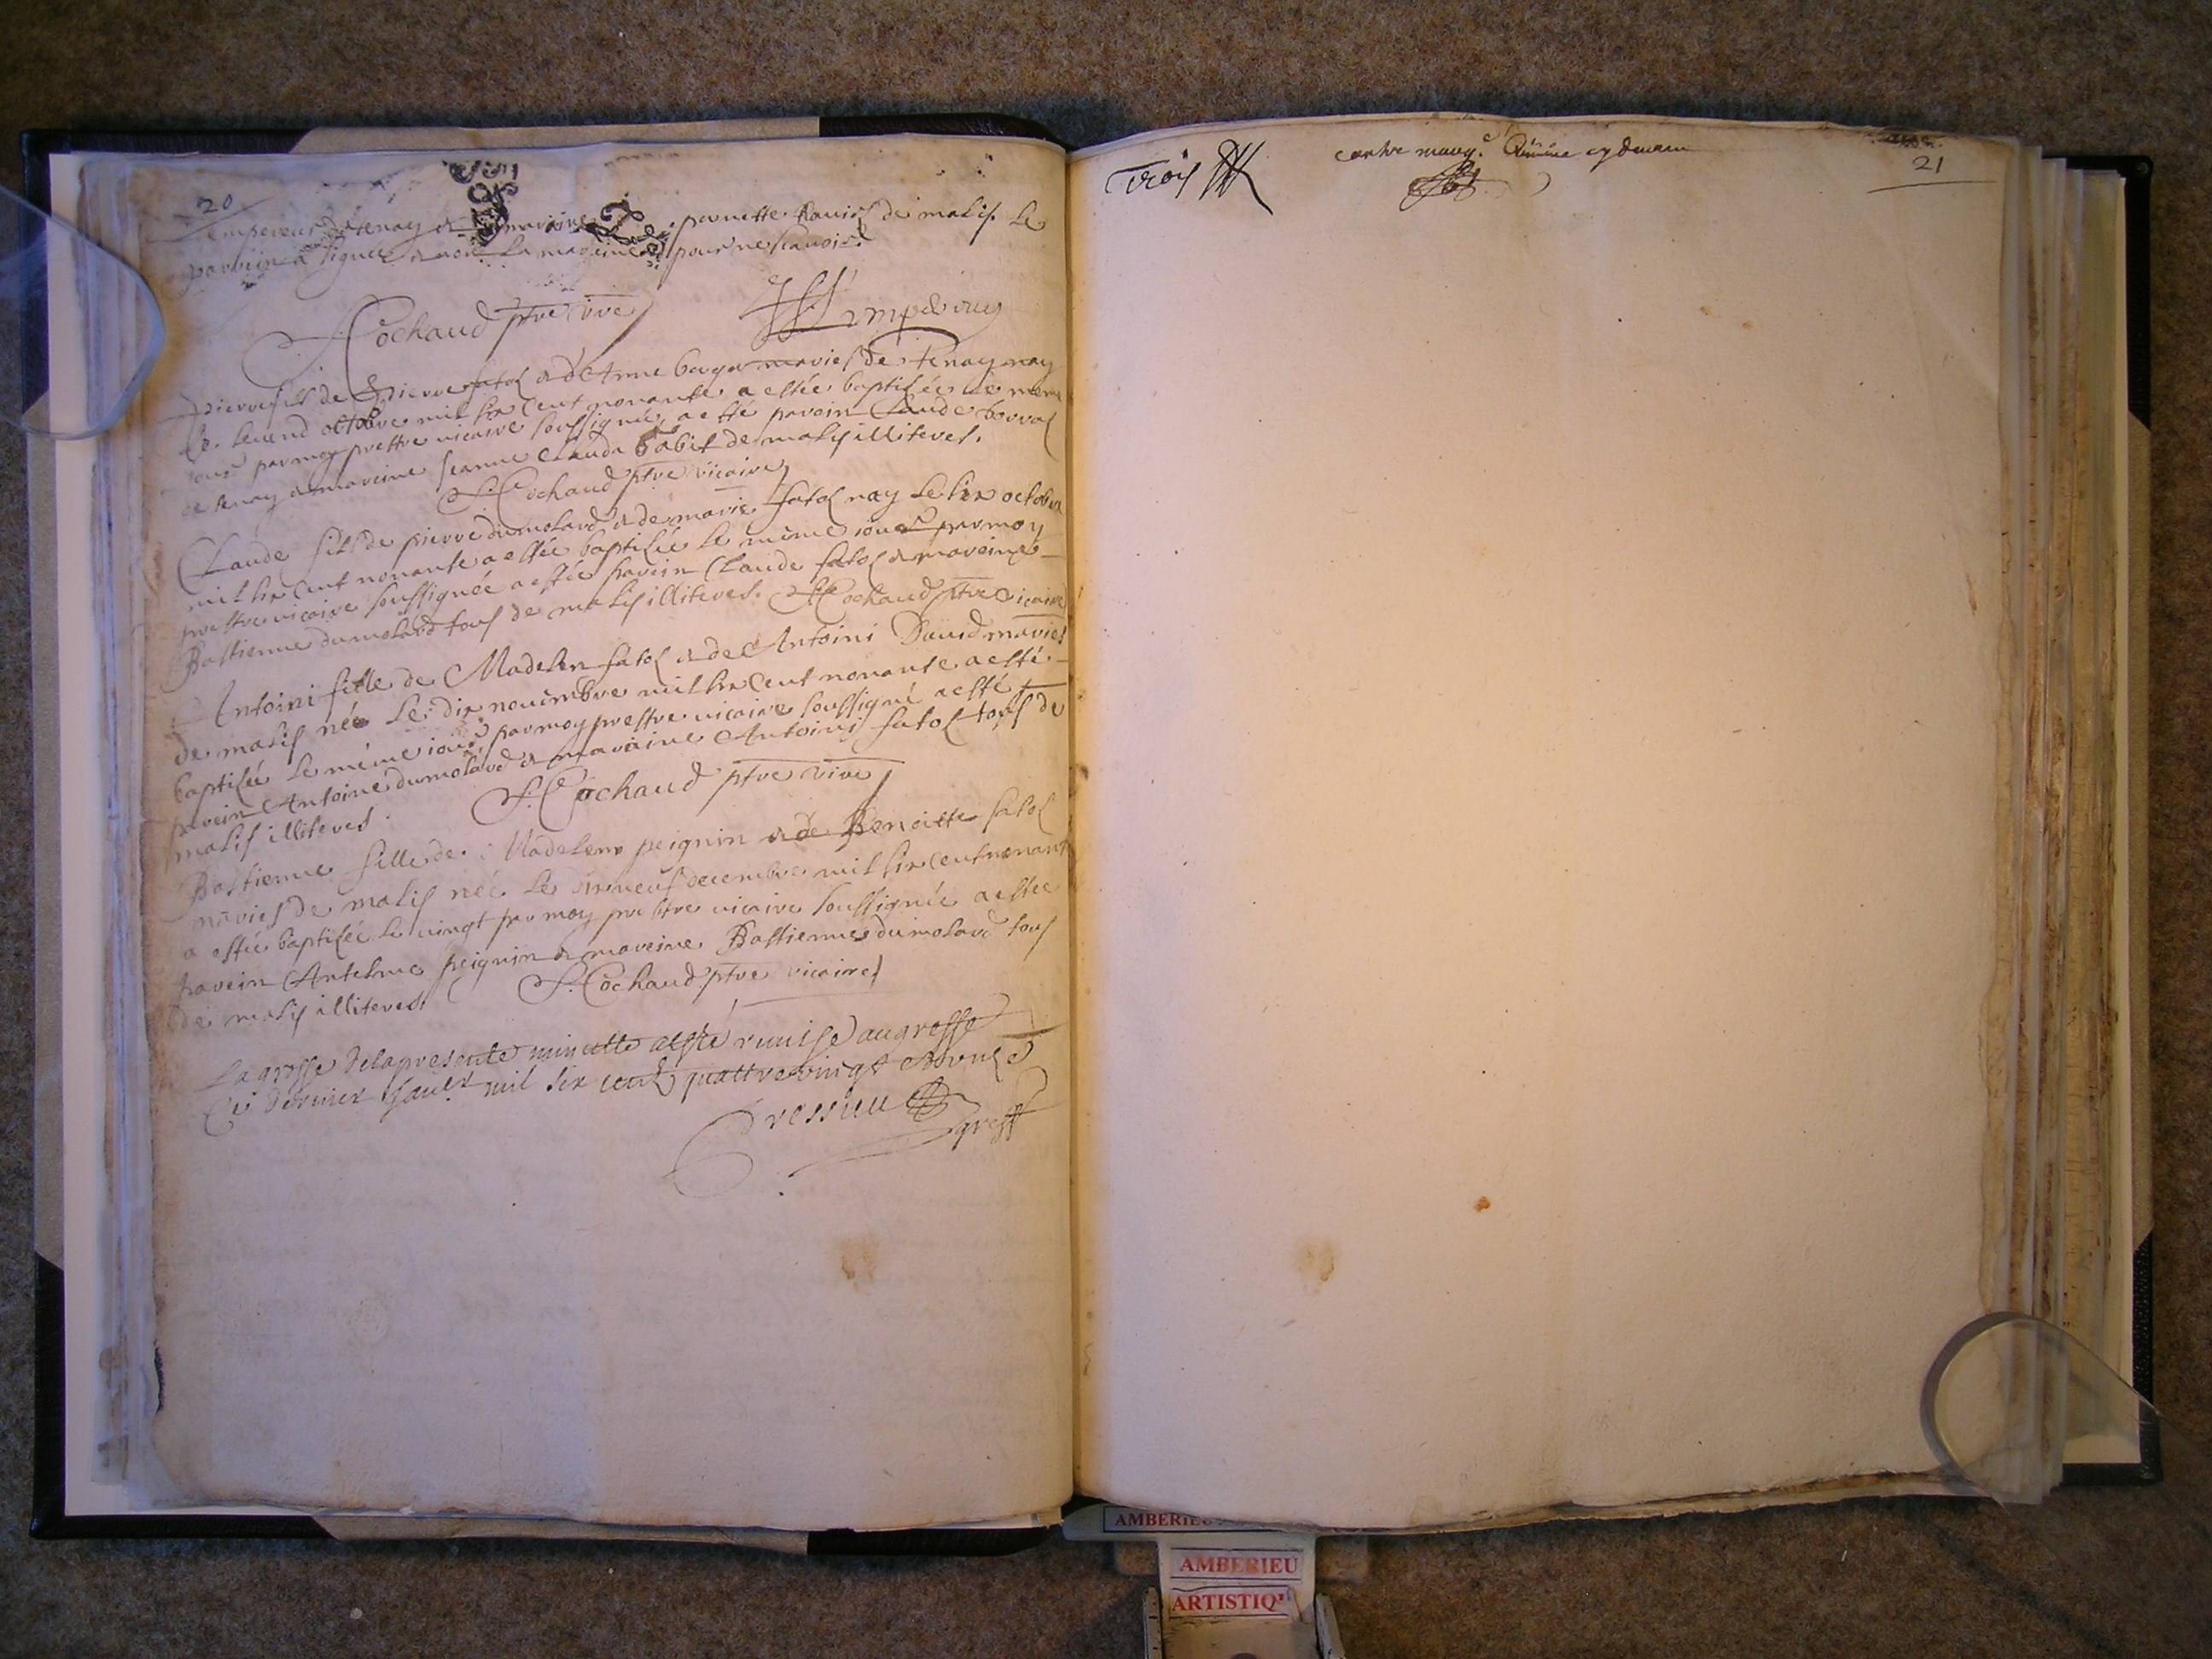 20
empereur de tenay & maraine pernette Dauid de malis. Le
parrein a signe & non la mareine pour ne scauoir.
Cochaud ptre vire
Lempereur
pierre fils de pierre fatol & d'Anne boyer maries de Tenay nay
le secend octobre mil six cent nonante a estée baptisée le meme
iour par moy prestre vicaire soussigné, a esté parein Claude borrol
de tenay & mareine Jeanne Clauda babit de malis illiteres.
S. Cochaud ptre vicaire
Claude fils de pierre dumolard & de marie fatol nay le six octobre
mil six cent nonante a estée baptisée le même iour par moy
prestre vicaire soussignée a estée parein Claude fatol & mareine
Bastienne dumolard tous de malis illiteres. S. Cochaud ptre vicaire
Antoini fille de Madelen fatol & de Antoini Dauid maries
de malis née le dix nouembre mil six cent nonante a esté
baptisée le même iour, par moy prestre vicaire soussigné a esté
parein Antoine dumolard & maraine Antoini fatol tous de
malis illiteres.
S. Cochaud ptre vire
Bastienne fille de Madelene peignin & de Benoitte fatol
maries de malis née le dixneuf decembre mil six cent nonant
a estée baptisée le vingt par moy prestre vicaire soussignée a estée
parein Antelme peignin & mareine Bastienne dumolard tous
de malis illiteres.
S. Cochaud ptre vicaire
La grosse de la presente minutte a esté remise au greffe
Ce dernier Janer mil six cent quattre vingt & onze
Dressieu
greff
Trois
contre marq.e comme cy deuant
21
AMBERIEU
AMBERIEU
ARTISTIQ